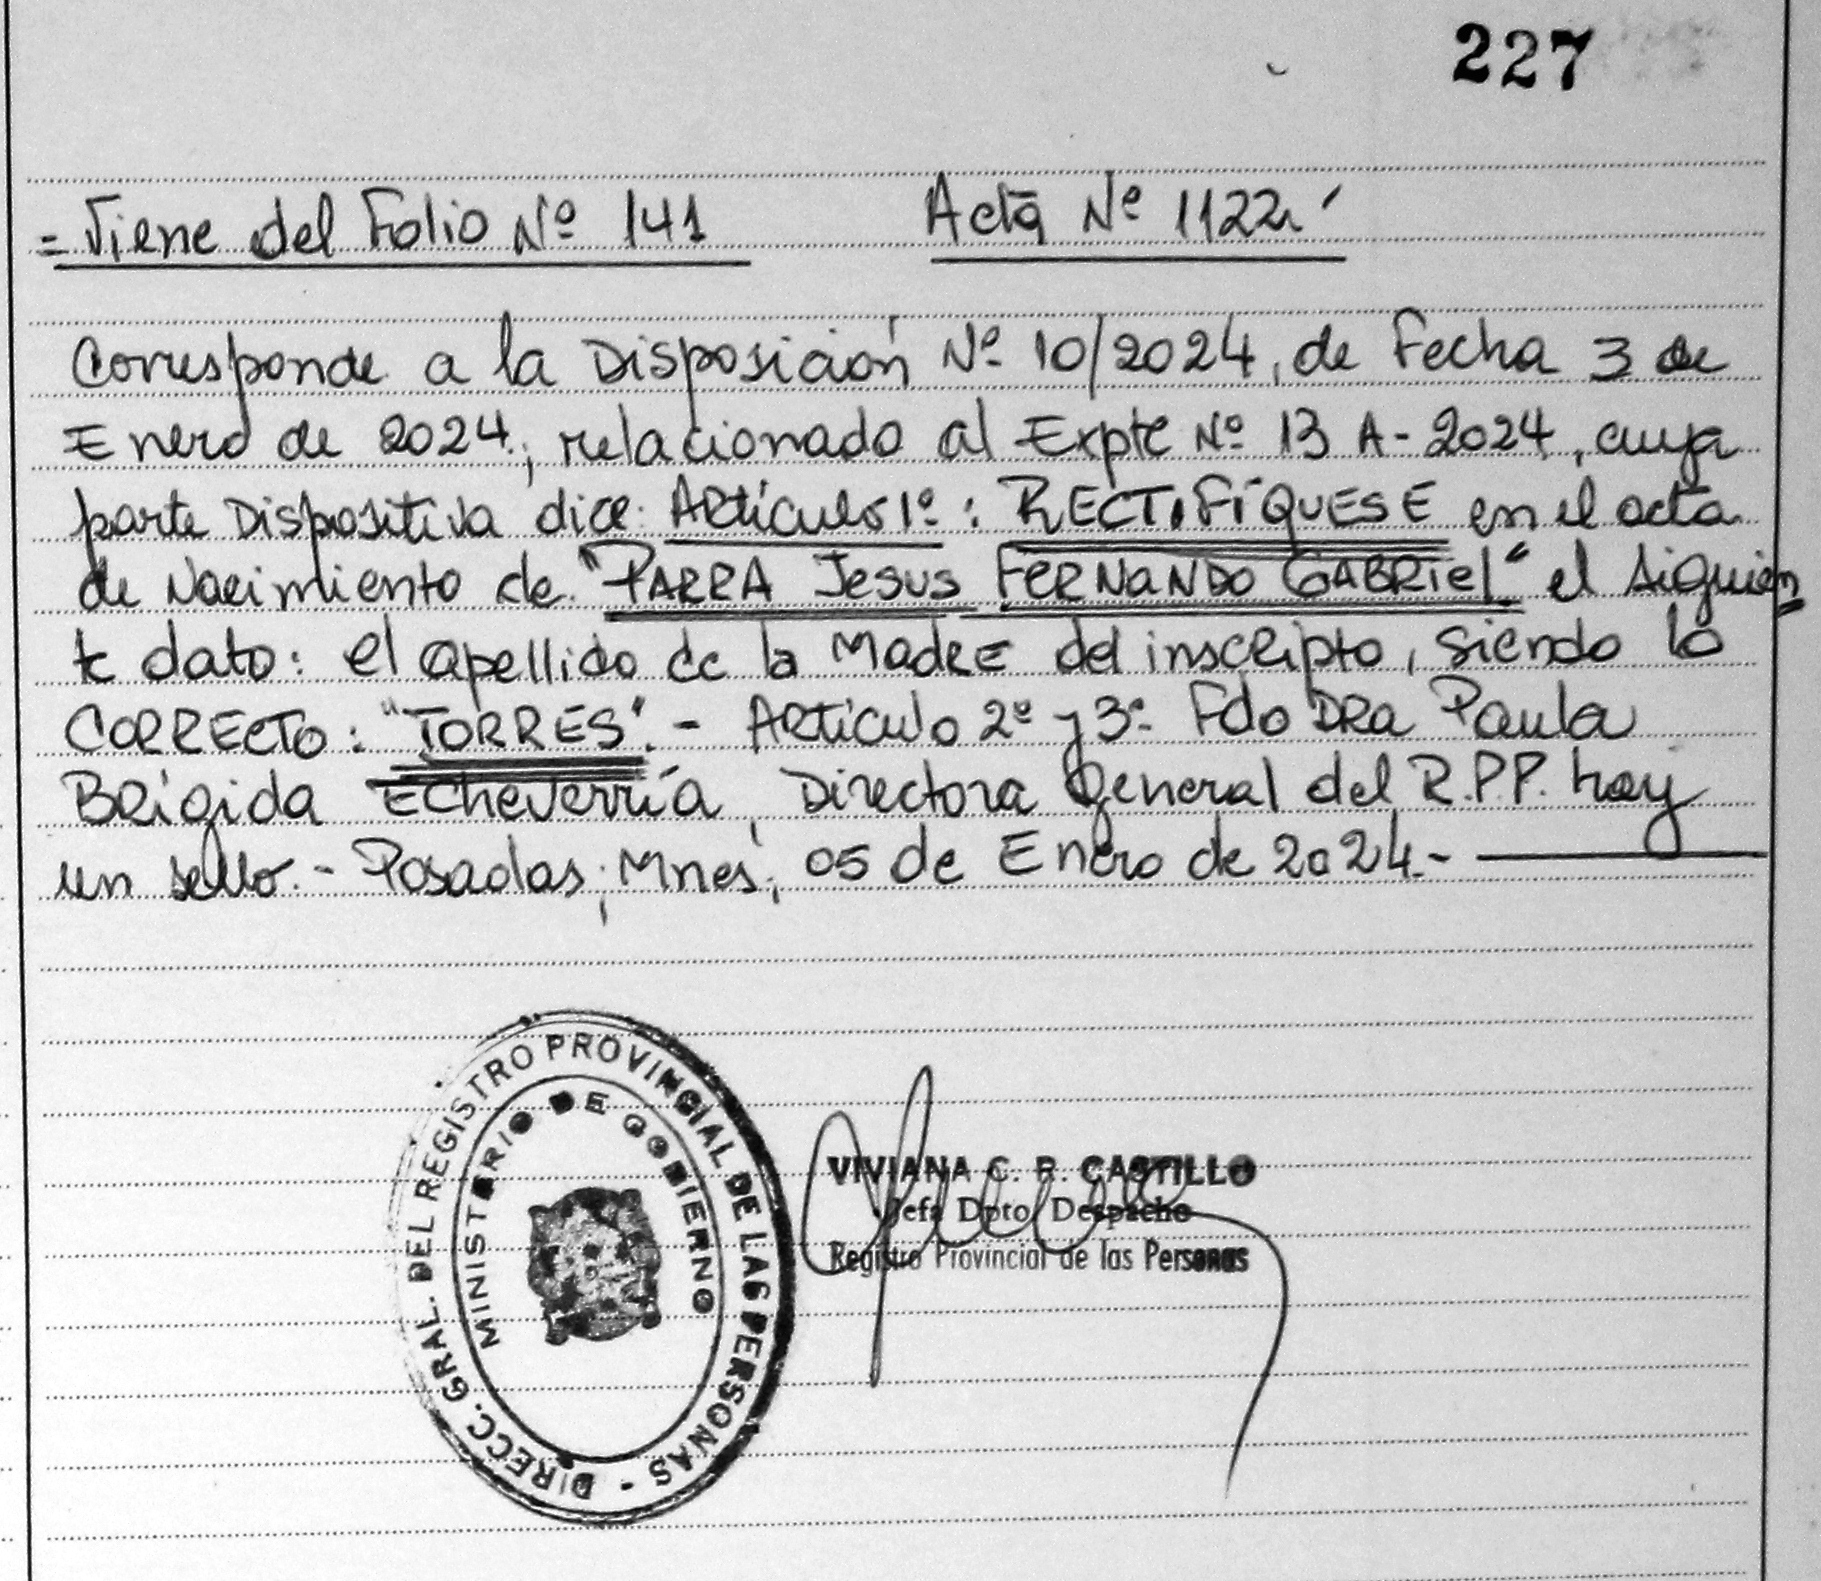 227
= Viene del Folio Nº 141 Acta Nº 1122
Corresponde a la Disposición Nº 10/2024, de Fecha 3 de
Enero de 2024, relacionado al Expte Nº 13 A-2024, cuya
parte Dispositiva dice: Artículo 1º: RECTIFÍQUESE en el acta
de Nacimiento de "PARRA Jesus FERNANDO GABRIEL" el siguien
te dato: el apellido de la Madre del inscripto, siendo lo
CORRECTO: "TORRES".- Artículo 2º y 3º Fdo DRA Paula
Brígida Echeverría, Directora General del R.P.P. hay
un sello.- Posadas, Mnes, 05 de Enero de 2024.-
DIRECC. GRAL. DEL REGISTRO PROVINCIAL DE LAS PERSONAS -
MINISTERIO DE GOBIERNO
VIVIANA C. R. CASTILLO
Jefa Dpto. Despacho
Registro Provincial de las Personas